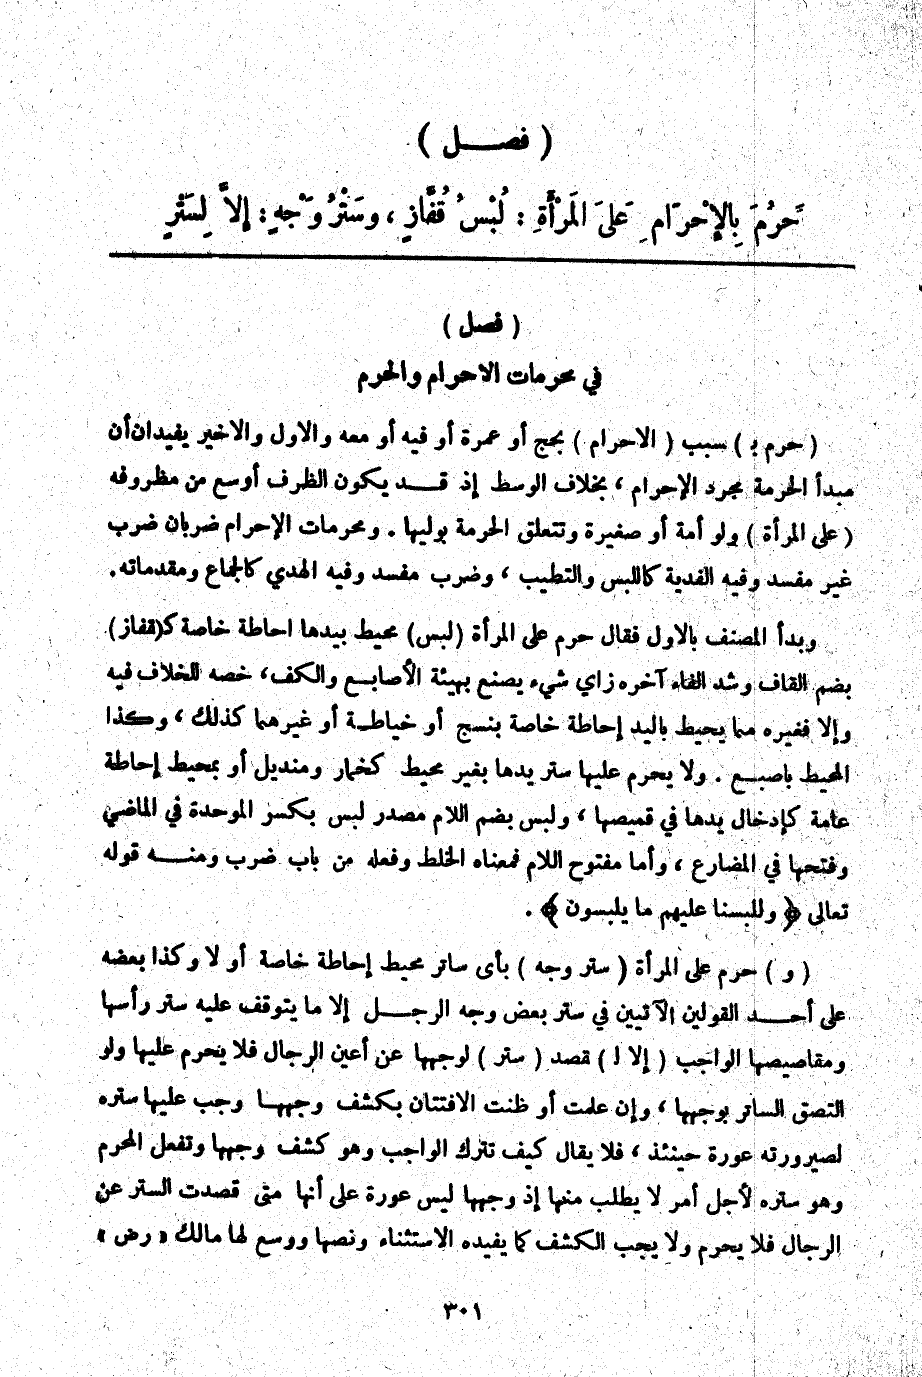 ( فصـــل )
حَرُمَ بِالإِحْرَامِ عَلَى المَرْأَةِ : لُبْسُ قُفَّازٍ ، وسَتْرُ وَجْهٍ : إلاَّ لِسَتْرٍ
( فصل )
في محرمات الاحرام والحرم
( حرم بـ ) سبب ( الاحرام ) بحج أو عمرة أو فيه أو معه والاول والاخير يفيدان أن
مبدأ الحرمة مجرد الإحرام ، بخلاف الوسط إذ قـــد يكون الظرف أوسع من مظروفه
( على المرأة ) ولو أمة أو صغيرة وتتعلق الحرمة بوليها . ومحرمات الإحرام ضربان ضرب
غير مفسد وفيه الفدية كاللبس والتطيب ، وضرب مفسد وفيه الهدي كالجماع ومقدماته.
وبدأ المصنف بالاول فقال حرم على المرأة (لبس) محيط بيدها احاطة خاصة كـ(قفاز)
بضم القاف وشد الفاء آخره زاي شيء يصنع بهيئة الأصابـــع والكف، خصه للخلاف فيه
وإلا فغيره مما يحيط باليد إحاطة خاصة بنسج أو خياطــة أو غيرهما كذلك ، وكذا
المحيط باصبــع . ولا يحرم عليها ستر يدها بغير محيط كخمار ومنديل أو بمحيط إحاطة
عامة كإدخال يدها في قميصها ، ولبس بضم اللام مصدر لبس بكسر الموحدة في الماضي
وفتحها في المضارع ، وأما مفتوح اللام فمعناه الخلط وفعله من باب ضرب ومنـــه قوله
تعالى ﴿ وللبسنا عليهم ما يلبسون ﴾ .
( و ) حرم على المرأة ( ستر وجه ) بأى ساتر محيط إحاطة خاصة أو لا وكذا بعضه
على أحـــد القولين الآتيين في ستر بعض وجه الرجـــل إلا ما يتوقف عليه ستر رأسها
ومقاصيصها الواجب ( إلا لـ ) قصد ( ستر ) لوجهها عن أعين الرجال فلا يحرم عليها ولو
التصق الساتر بوجهها ، وإن علمت أو ظنت الافتتان بكشف وجههــا وجب عليها ستره
لصيرورته عورة حينئذ ، فلا يقال كيف تترك الواجب وهو كشف وجهها وتفعل المحرم
وهو ستره لأجل أمر لا يطلب منها إذ وجهها ليس عورة على أنها متى قصدت الستر عن
الرجال فلا يحرم ولا يجب الكشف كما يفيده الاستثناء ونصها ووسع لها مالك « رض »
٣٠١